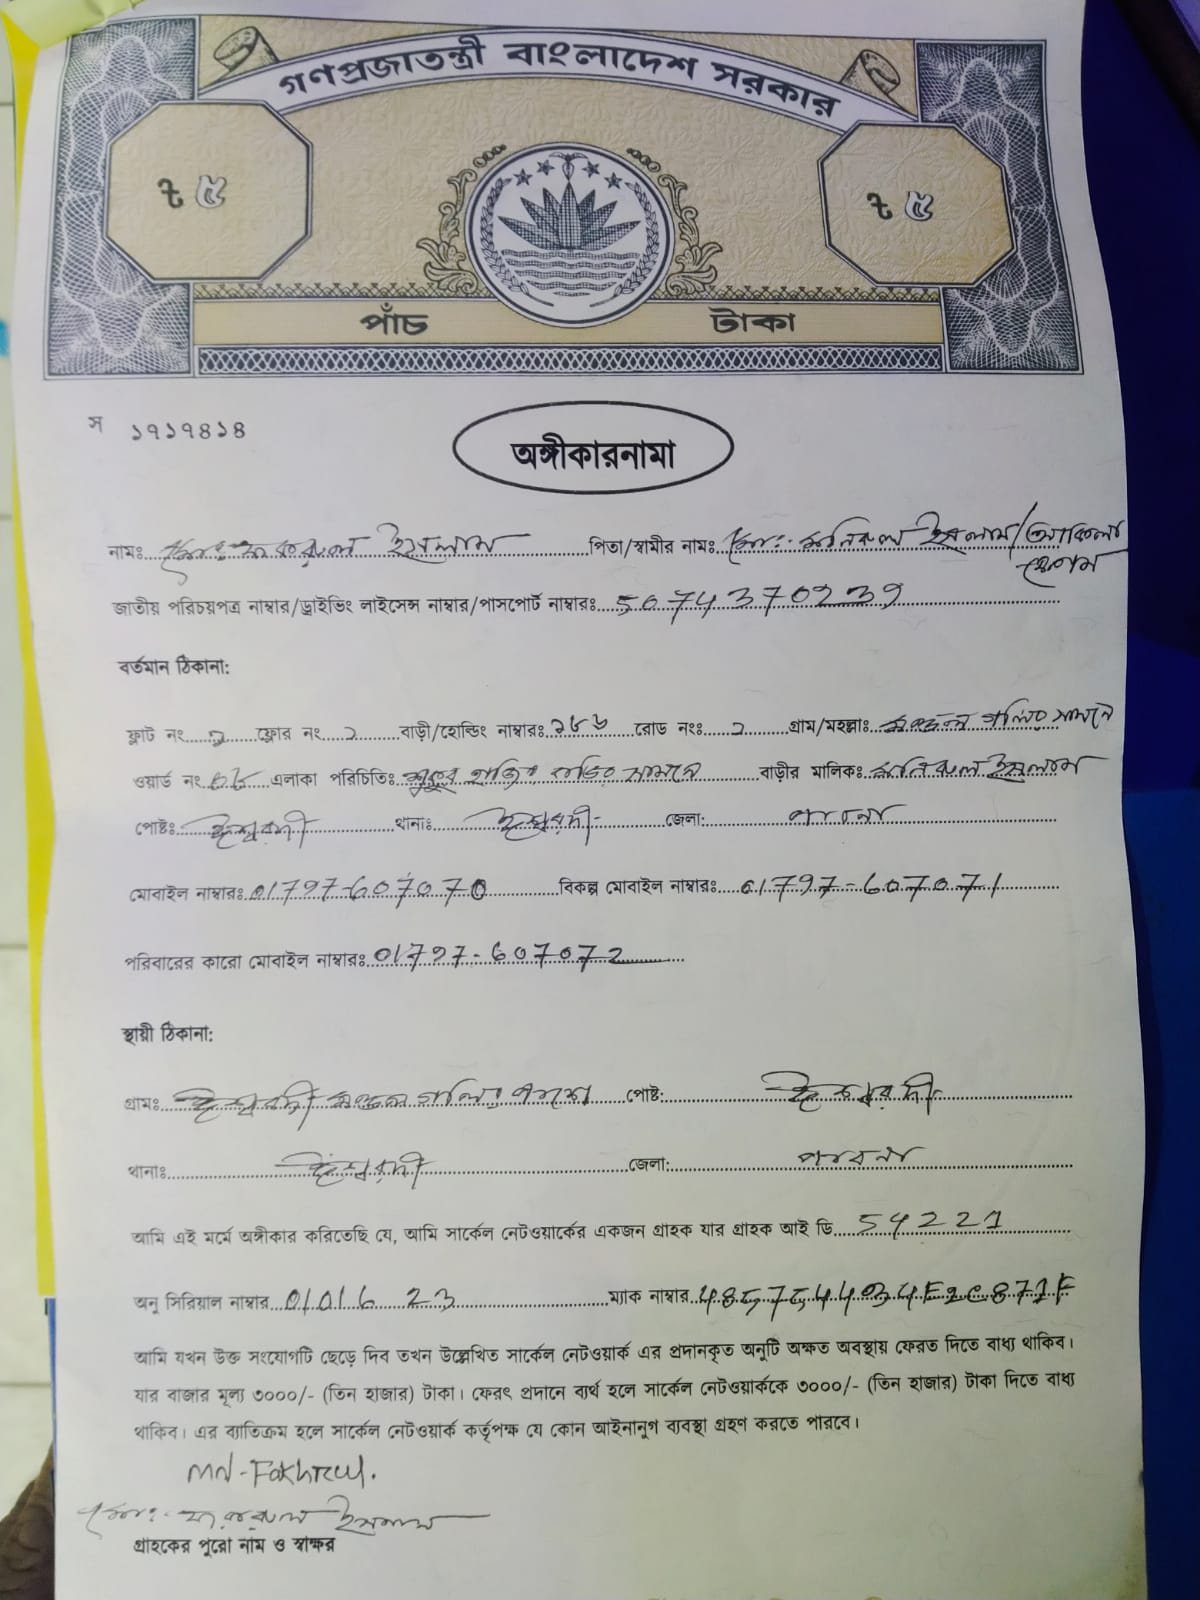 গণপ্রজাতন্ত্রী বাংলাদেশ সরকার
৳ ৫ ৳ ৫
পাঁচ টাকা
স ১৭১৭৪১৪
অঙ্গীকারনামা
নামঃ মোঃ ফকরুল ইসলাম পিতা/স্বামীর নামঃ মোঃ মনিরুল ইসলাম/
জাতীয় পরিচয়পত্র নাম্বার/ড্রাইভিং লাইসেন্স নাম্বার/পাসপোর্ট নাম্বারঃ 5074370239
বর্তমান ঠিকানা:
ফ্লাট নং ফ্লোর নং ২ বাড়ী/হোল্ডিং নাম্বারঃ রোড নংঃ ২ গ্রাম/মহল্লাঃ গলির সামনে
ওয়ার্ড নং এলাকা পরিচিতিঃ বাড়ির সামনে বাড়ীর মালিকঃ মনিরুল ইসলাম
পোষ্টঃ ঈশ্বরদী থানাঃ ঈশ্বরদী জেলা: পাবনা
মোবাইল নাম্বারঃ 01797-607070 বিকল্প মোবাইল নাম্বারঃ 01797-607071
পরিবারের কারো মোবাইল নাম্বারঃ 01797-607072
স্থায়ী ঠিকানা:
গ্রামঃ ঈশ্বরদী গলির পাশে পোষ্ট: ঈশ্বরদী
থানাঃ ঈশ্বরদী জেলা: পাবনা
আমি এই মর্মে অঙ্গীকার করিতেছি যে, আমি সার্কেল নেটওয়ার্কের একজন গ্রাহক যার গ্রাহক আই ডি 54221
অনু সিরিয়াল নাম্বার 01016 23 ম্যাক নাম্বার
আমি যখন উক্ত সংযোগটি ছেড়ে দিব তখন উল্লেখিত সার্কেল নেটওয়ার্ক এর প্রদানকৃত অনুটি অক্ষত অবস্থায় ফেরত দিতে বাধ্য থাকিব।
যার বাজার মূল্য ৩০০০/- (তিন হাজার) টাকা। ফেরৎ প্রদানে ব্যর্থ হলে সার্কেল নেটওয়ার্ককে ৩০০০/- (তিন হাজার) টাকা দিতে বাধ্য
থাকিব। এর ব্যাতিক্রম হলে সার্কেল নেটওয়ার্ক কর্তৃপক্ষ যে কোন আইনানুগ ব্যবস্থা গ্রহণ করতে পারবে।
Md-Fakhrul.
মোঃ ফকরুল ইসলাম
গ্রাহকের পুরো নাম ও স্বাক্ষর